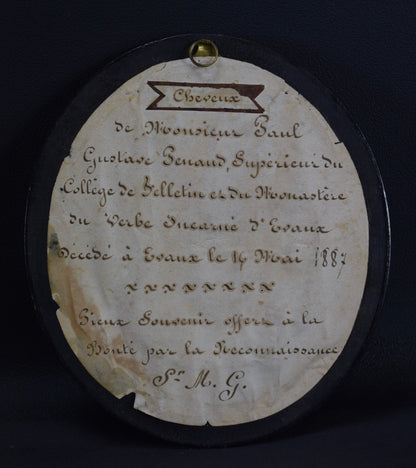 Cheveux
de Monsieur Paul
Gustave Penaud, Supérieur du
Collège de Felletin et du Monastère
du Verbe Incarné d'Evaux
Décédé à Evaux le 16 Mai 1887
x x x x x x x x
Pieux Souvenir offert à la
Bonté par la Reconnaissance
Sr. M. G.